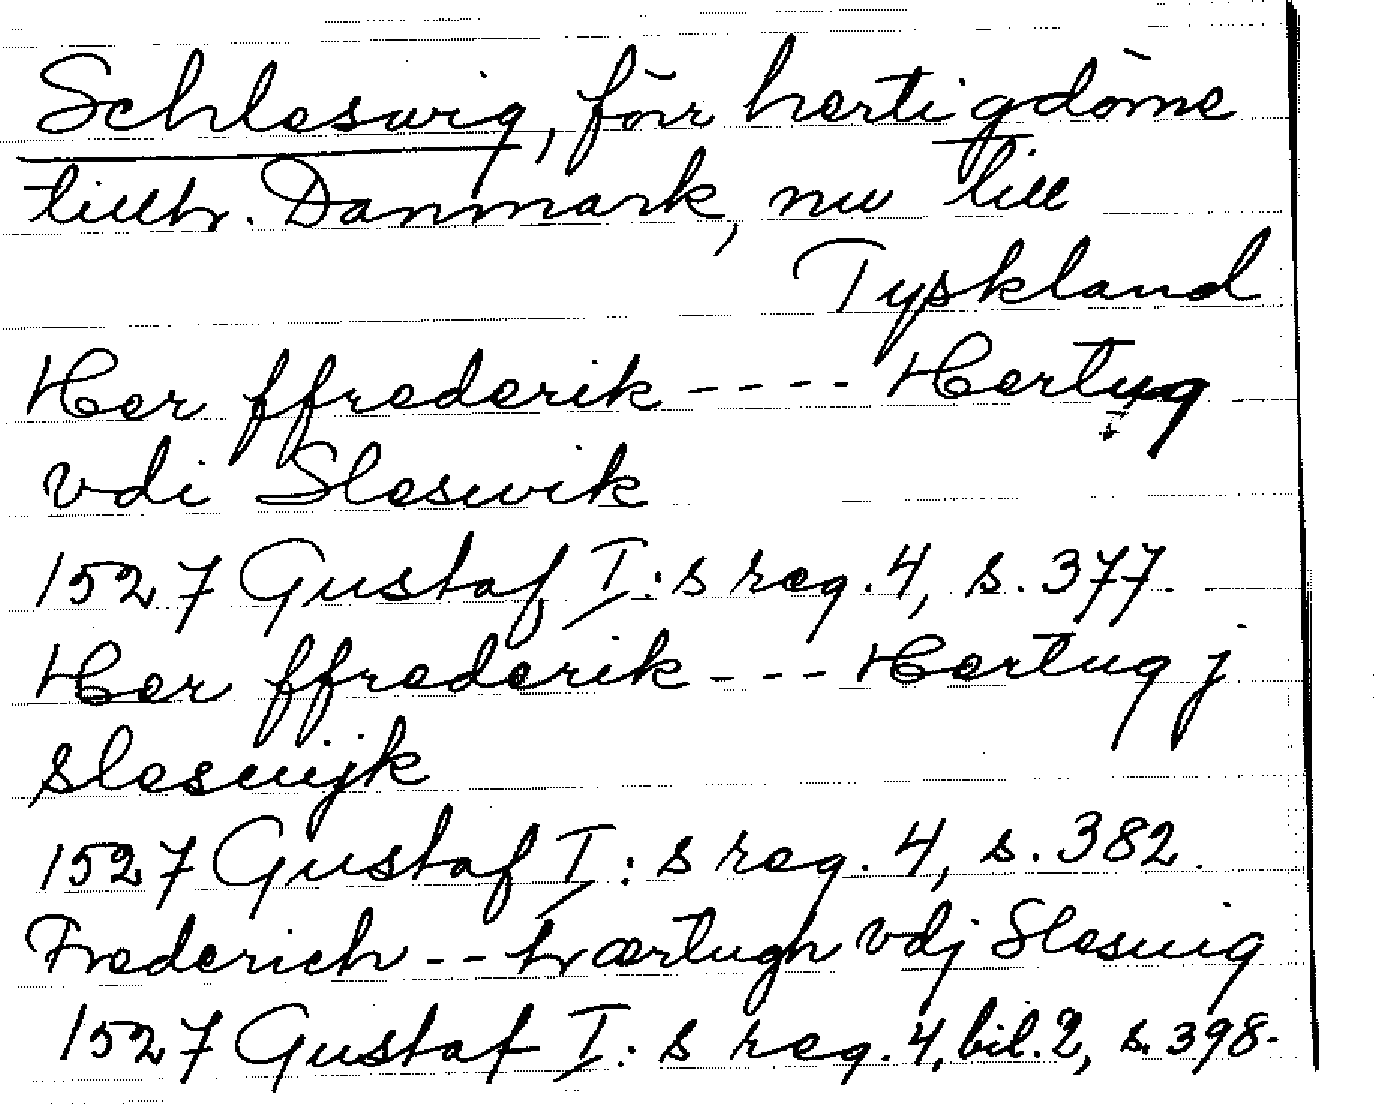 Schleswig, förr hertigdöme
tillh. Danmark, nu till
Tyskland
Her ffrederik ---- Hertug
vdi Sleswik
1527 Gustaf I:s reg. 4, s. 377.
Her ffrederik --- Hertug j
sleswijk
1527 Gustaf I:s reg. 4, s. 382.
Frederich -- hærtugh vdj Sleswig
1527 Gustaf I:s reg. 4, bil. 2, s. 398.